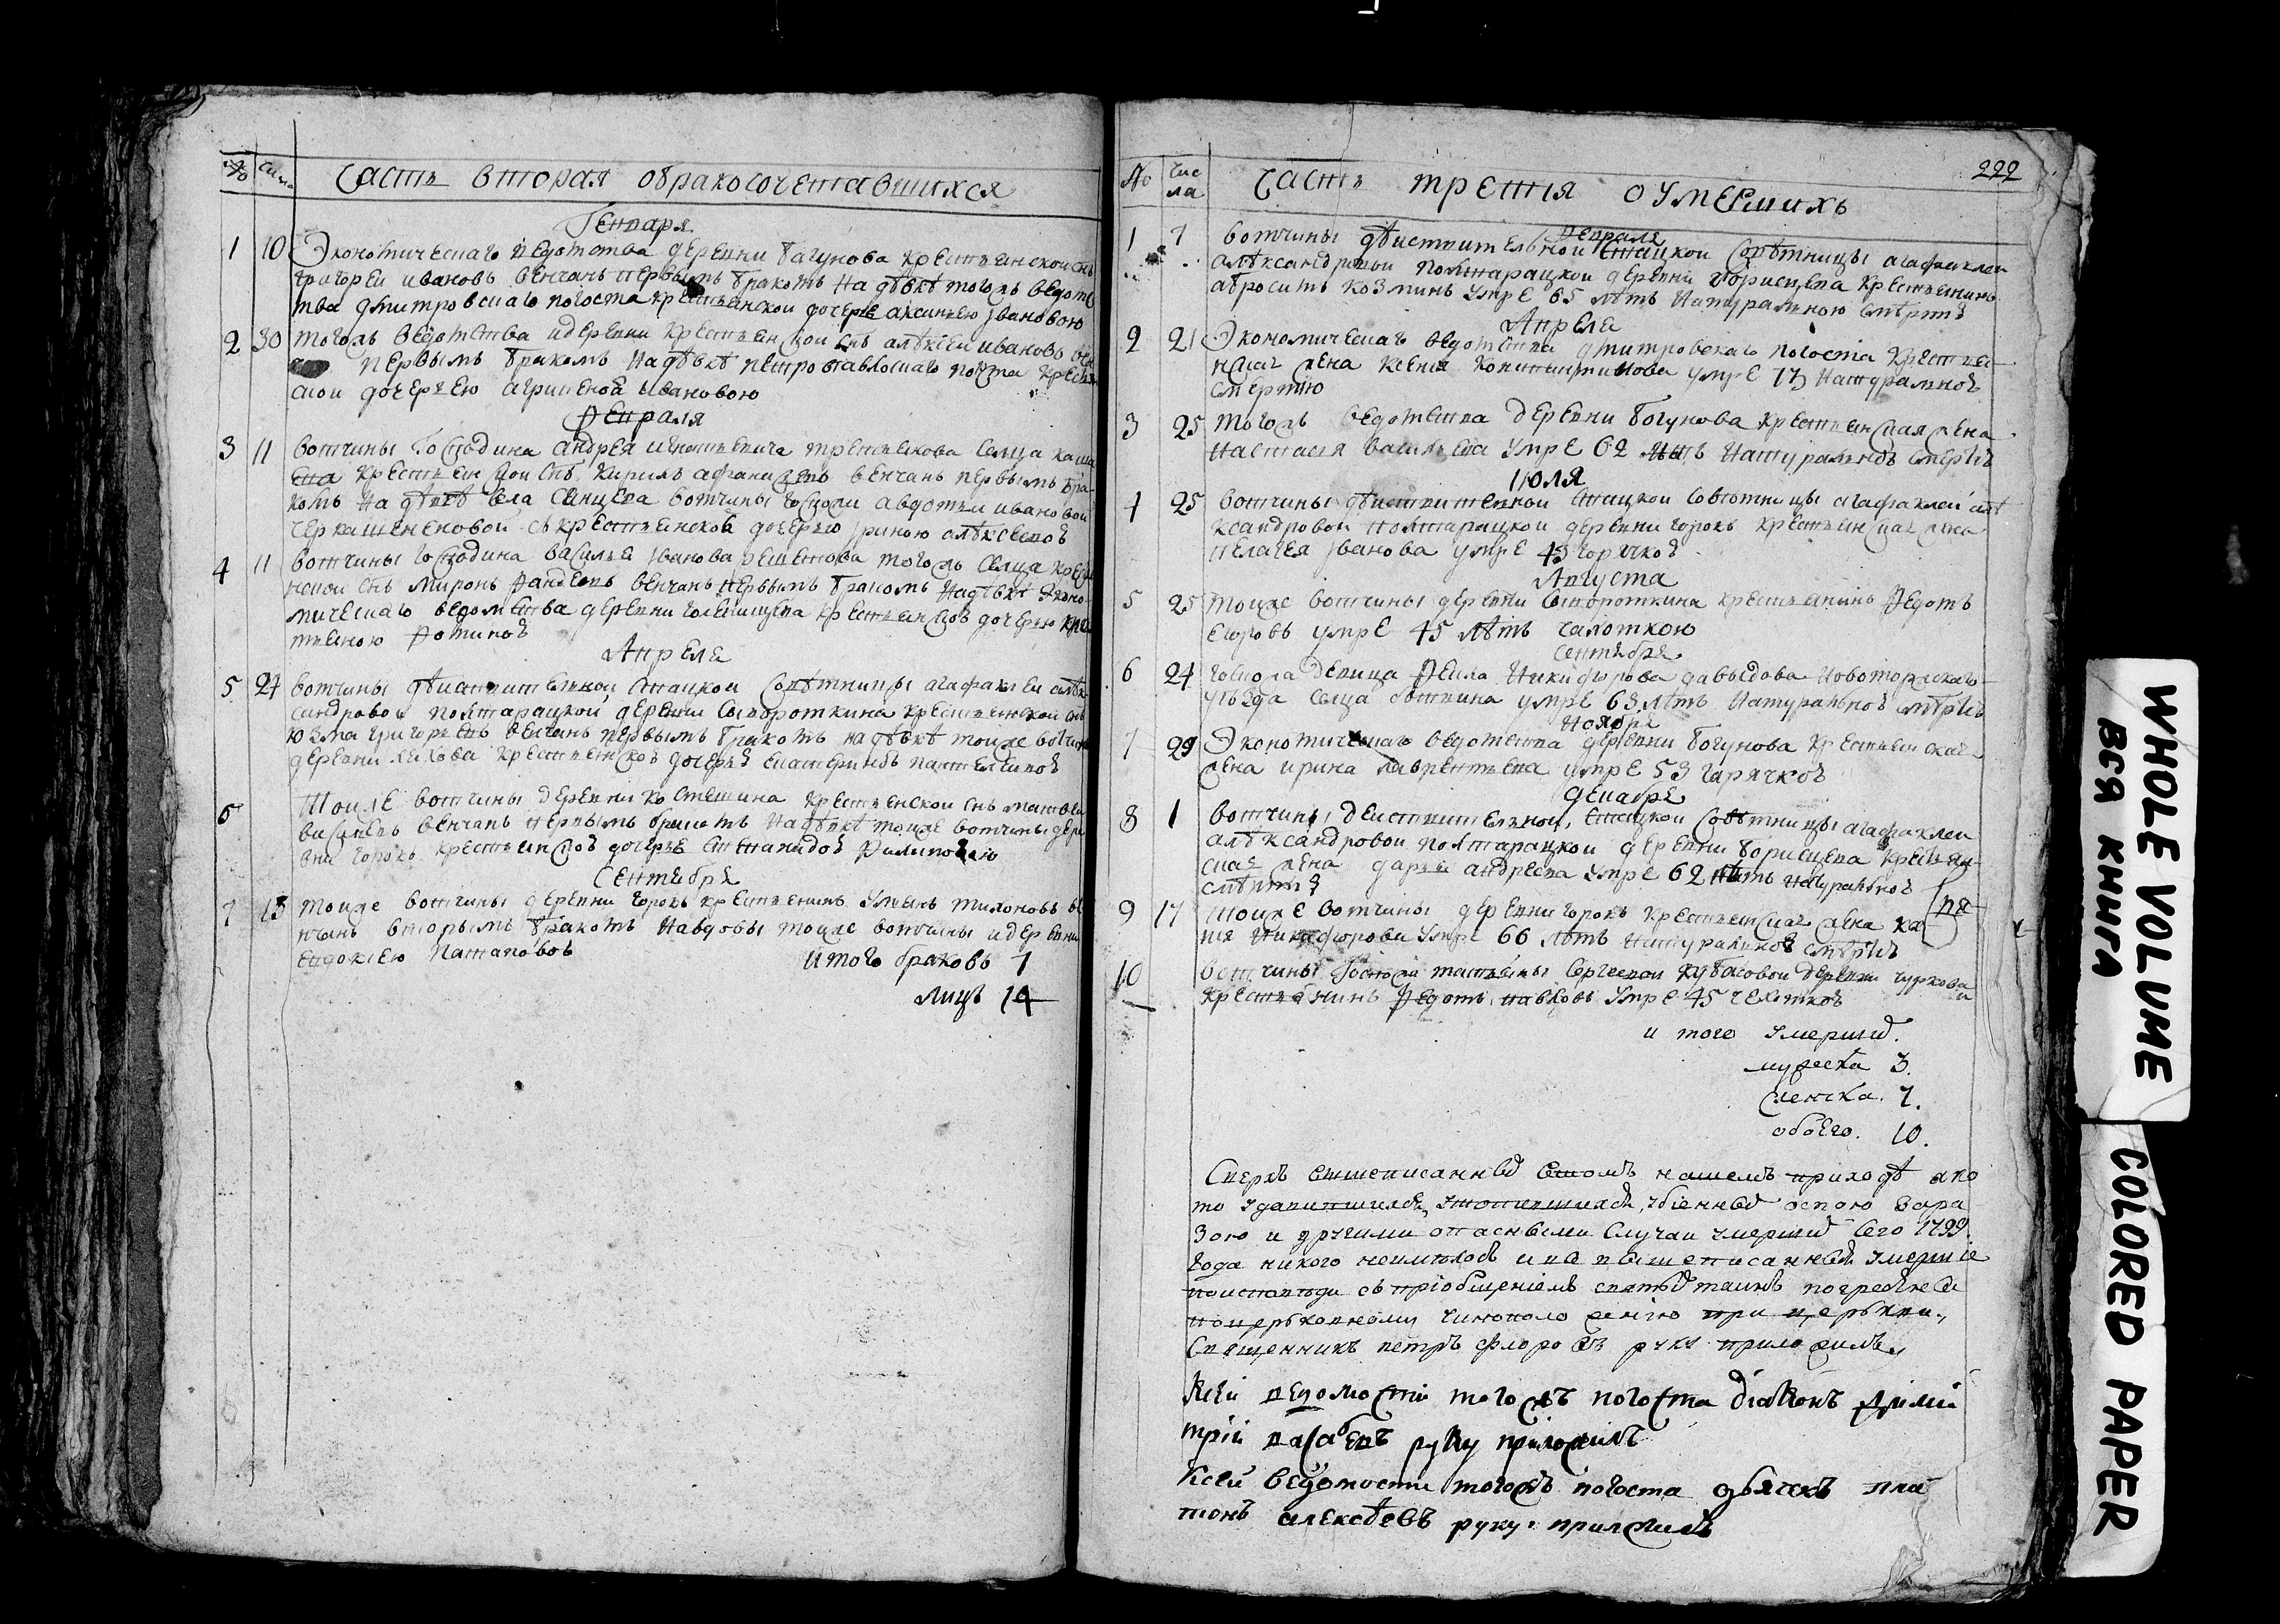 № Числа Часть вторая обракосочетавшихся
Генваря
1 10 Экономическаго ведомства деревни Багунова крестьянской снъ
григореи ивановъ венчанъ первымъ бракомъ на дѣвкѣ тогожъ ведомс
тва дмитровскаго погоста крестьянской дочерѣ аксиньею Ивановою
2 30 тогожъ ведомства идеревни крестьенской снъ алѣксѣи ивановъ вен
первымъ бракомъ на дѣвкѣ петропавловскаго погоста крестьян
ской дочерьею агрипеной ивановою
Февраля
3 11 вотчины Господина андрея игнатьевича третьекова селца каша
ева крестьенской снъ Кирилъ афанасьевъ венчанъ первымъ бра
комъ на дѣвкѣ села вотчины госпожи авдотьи ивановой
черкашениновой съ крестьенской дочерью Ириною алѣксѣевой
4 11 вотчины господина василья Иванова тогожъ селца кресть
нской снъ миронъ венчанъ первымъ бракомъ на дѣвкѣ Эконо
мическаго ведомства деревни голенищева крестьенской дочерью кре
тьеною Фоминой
Апреля
5 24 вотчины дѣиствителной статской совѣтницы агафаклеи алѣк
сандровой полтарацкой деревни сывороткина крестьянской снъ
козма григорьевъ венчанъ первымъ бракомъ на дѣвкѣ тоиже вотчины
деревни крестьенской дочерѣ екатериной пантелеевой
6 Тоиже вотчины деревни костешина крестьенской снъ матвеи
васильевъ венчанъ первымъ бракомъ на дѣвкѣ тоиже вотчины дере
вни горокъ крестьенской дочерѣ степанидой Филиповою
Сентебря
7 13 тоиже вотчины деревни горокъ крестьенинъ тихоновъ ве
нчанъ вторымъ бракомъ на вдовы тоиже вотчины идеревни
евдокиею Патаповой итого браковъ 7
лицъ 14
222
№ числа Часть третия оумершихъ
Февраля
1 7 вотчины дѣиствителной статской совѣтницы агафаклеи
алѣксандровой полтарацкой деревни борисцева крестьенинъ
абросимъ козминъ умре 65 лѣтъ натуралною смертию
Апреля
2 21 Экономическаго ведомства дмитровскаго погоста крестьен
ская жена ксения Констынтинова умре 73 натуралной
смертию
3 25 тогожъ ведомства деревни богунова крестьенская жена
настасия васильева умре 62 лѣтъ натуралной смертию
июля
4 25 вотчины дѣиствителной статской совѣтницы агафаклеи алѣ
ксандровой полтарацкой деревни горокъ крестьенская жена
пелагея Иванова умре 43 горячкой
Августа
5 25 тоиже вотчины деревни сывороткина крестьенинъ Федотъ
егоровъ умре 45 лѣтъ чахоткою
сентября
6 24 госпожа девица Фекла Никифорова давыдова новоторжскаго
уѣзда селца умре 63 лѣтъ натуралной смертию
ноября
7 29 Экономическаго ведомства деревни богунова крестьенская
жена ирина лаврентьева умре 53 гарячкой
декабря
8 1 вотчины деиствителной статской совѣтницы агафаклеи
алѣксандровой полтарацкой деревни борисцева крестьен
ская жена дарья андреева умре 62 лѣтъ натуралной
смертию
9 17 тоиже вотчины деревни горокъ крестьенская жена ка
пя Никифорова умре 66 лѣтъ натуралной смертию
10 вотчины Госпожи татьяны сергеевой кубасовой деревни чуркова
крестьенинъ Федотъ ивановъ умре 45 чехоткой
и того умершихъ
мужеска 3.
женска. 7.
обоего. 10.
Сверхъ вышеписанныхъ всемъ нашемъ приходѣ ако
то удавившихся, утопившихся, убиенныхъ оспою зара
зою и другими опасными случаи умершихъ сего 1799
года никого неимѣлось и вс вышеписанныя умершіе
поисповѣди съ пріобщеніемъ святыхъ таинъ погребены
поцерьковному чиноположенію при церькви.,
Священникъ петръ флоровъ руку приложилъ
Ксеи ведомости тогожъ погоста діаконъ Дими
трій руку приложилъ
Ксеи ведомости тогожъ погоста дьячекъ пла
тонъ алексѣевъ руку приложилъ
WHOLE VOLUME
ВСЯ КНИГА
COLORED PAPER